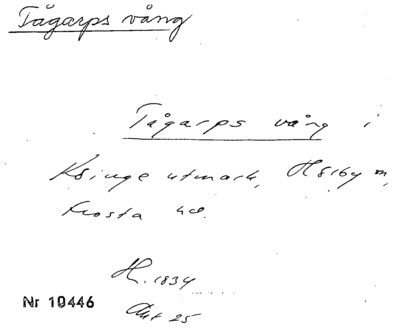 Tågarps vång
Tågarps vång i
Ksinge utmark, Hsiby m,
Frosta hd.
H. 1834
Nr 10446
Akt 25